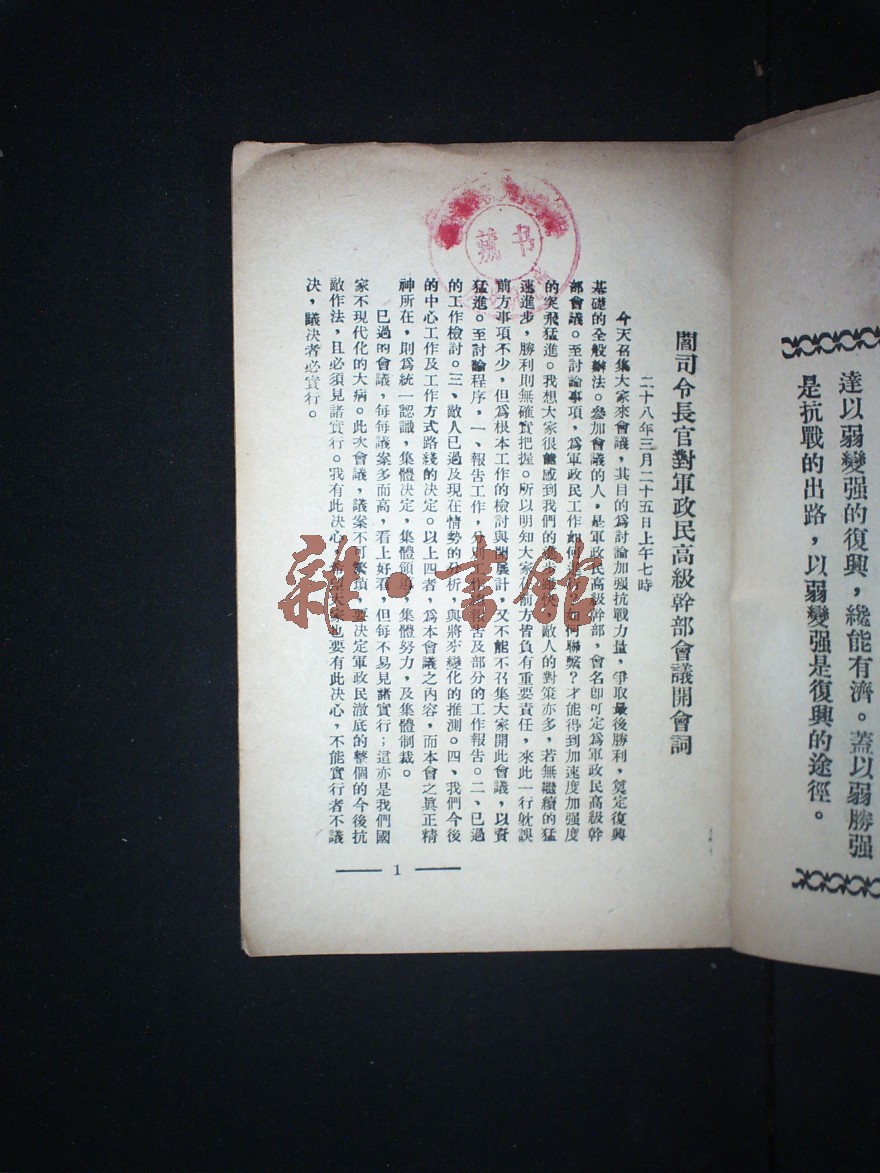 達以弱變强的復興,纔能有濟。蓋以弱勝强
是抗戰的出路,以弱變强是復興的途徑。
閻司令長官對軍政民高級幹部會議開會詞
二十八年三月二十五日上午七時
今天召集大家來會議,其目的爲討論加强抗戰力量,爭取最後勝利,奠定復興
基礎的全般辦法。參加會議的人,是軍政民高級幹部,會名即可定爲軍政民高級幹
部會議。至討論事項,爲軍政民工作如何進行,如何聯繫?才能得到加速度加强度
的突飛猛進。我想大家很能感到我們的進步敵人的對策亦多,若無繼續的猛
速進步,勝利則無確實把握。所以明知大家在前方皆負有重要責任,來此一行躭誤
前方事項不少,但爲根本工作的檢討與開展計,又不能不召集大家開此會議,以資
猛進。至討論程序,一、報告工作,分別工作報告及部分的工作報告。二、已過
的工作檢討。三、敵人已過及現在情勢的分析,與將來變化的推測。四、我們今後
的中心工作及工作方式路綫的决定。以上四者,爲本會議之內容,而本會之眞正精
神所在,則爲統一認識,集體决定,集體領導,集體努力,及集體制裁。
已過的會議,每每議案多而高,看上好看,但每不易見諸實行;這亦是我們國
家不現代化的大病。此次會議,議案不可繁瑣,要决定軍政民澈底的整個的今後抗
敵作法,且必須見諸實行。我有此决心,希望大家也要有此决心,不能實行者不議
决,議决者必實行。
1
雜·書館